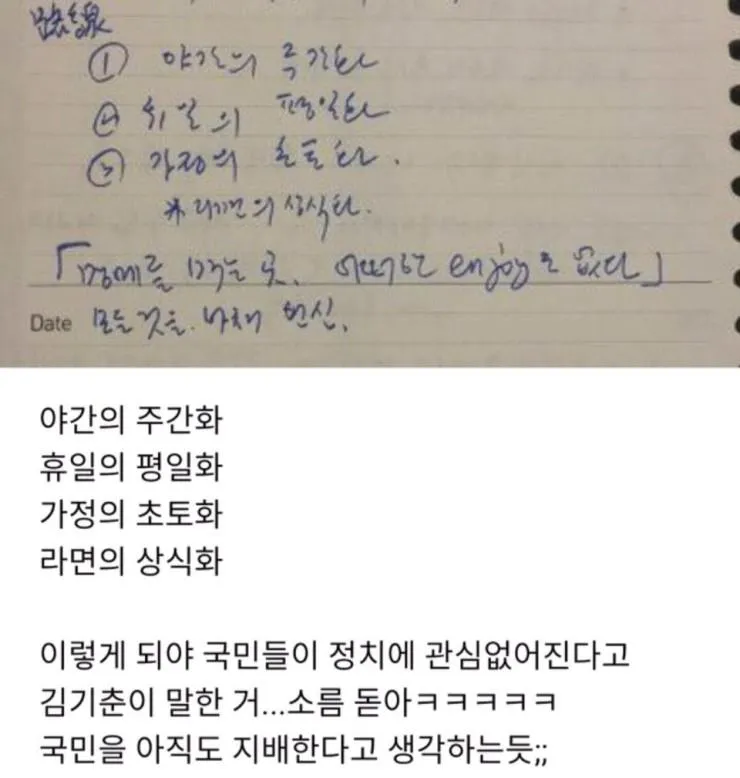 ① 야간의 주간화
② 휴일의 평일화
③ 가정의 초토화.
※ 라면의 상식화.
「명예를 먹는 곳. 어떠한 enjoy도 없다」
Date 모든 것을 바쳐 헌신.
야간의 주간화
휴일의 평일화
가정의 초토화
라면의 상식화
이렇게 되야 국민들이 정치에 관심없어진다고
김기춘이 말한 거...소름 돋아ㅋㅋㅋㅋㅋ
국민을 아직도 지배한다고 생각하는듯;;